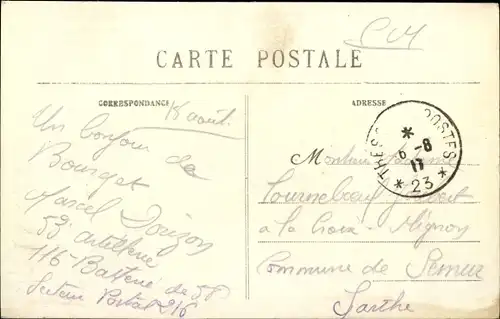 CM
CARTE POSTALE
CORRESPONDANCE
ADRESSE
août
Un bonjour de
Bourget
Marcel
53e artillerie
116 - Batterie de 58
Secteur Postal 216
TRÉSOR POSTES
6 - 8
17
* 23 *
Monsieur
Tourneboeuf
à la Croix - Mignon
Commune de Semur
Sarthe